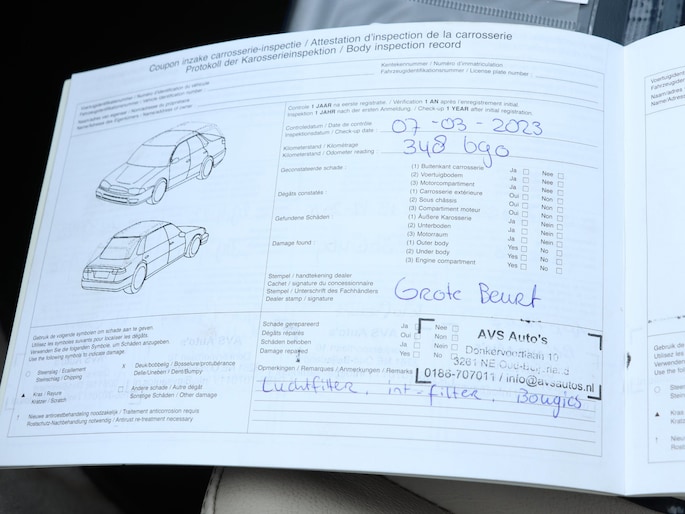 Coupon inzake carrosserie-inspectie / Attestation d'inspection de la carrosserie
Protokoll der Karosserieinspektion / Body inspection record
Kentekennummer / Numéro d'immatriculation
Fahrzeugidentifikationsnummer / License plate number :
Controle 1 JAAR na eerste registratie. / Vérification 1 AN après l'enregistrement initial.
Inspektion 1 JAHR nach der ersten Anmeldung. / Check-up 1 YEAR after initial registration.
Controledatum / Date de contrôle
Inspektionsdatum / Check-up date : 07-03-2023
Kilometerstand / Kilométrage
Kilometerstand / Odometer reading : 348 090
Geconstateerde schade : (1) Buitenkant carrosserie Ja Nee
(2) Voertuigbodem Ja Nee
(3) Motorcompartiment Ja Nee
Dégâts constatés : (1) Carrosserie extérieure Oui Non
(2) Sous châssis Oui Non
(3) Compartiment moteur Oui Non
Gefundene Schäden : (1) Äußere Karosserie Ja Nein
(2) Unterboden Ja Nein
(3) Motorraum Ja Nein
Damage found : (1) Outer body Yes No
(2) Under body Yes No
(3) Engine compartment Yes No
Stempel / handtekening dealer
Cachet / signature du concessionnaire
Stempel / Unterschrift des Fachhändlers
Dealer stamp / signature
Grote Beurt
Gebruik de volgende symbolen om schade aan te geven.
Utilisez les symboles suivants pour localiser les dégâts.
Verwenden Sie die folgenden Symbole, um Schäden anzugeben
Use the following symbols to indicate damage.
X Deuk/bobbelig / Bosselure/protubérance
Delle/Uneben / Dent/Bumpy
Steinschlag / Chipping
▲ Kras / Rayure
Kratzer / Scratch
Andere schade / Autre dégât
Sonstige Schäden / Other damage
! Nieuwe antiroestbehandeling noodzakelijk / Traitement anticorrosion requis
Rostschutz-Nachbehandlung notwendig / Antirust re-treatment necessary
Schade gerepareerd Ja Nee
Dégâts réparés Oui Non
Schäden behoben Ja Nein
Damage repaired Yes No
AVS Auto's
Donkervoortlaan 10
0186-707011 / info@avsautos.nl
Opmerkingen / Remarques / Anmerkungen / Remarks
Luchtfilter, int-filter, Bougies